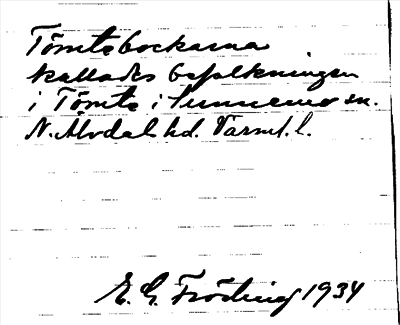 Tömtebockarna
kallades befolkningen
i Tömte i Sunnemo sn.
N. Älvdal hd. Värml. l.
E. G. Fröding 1934